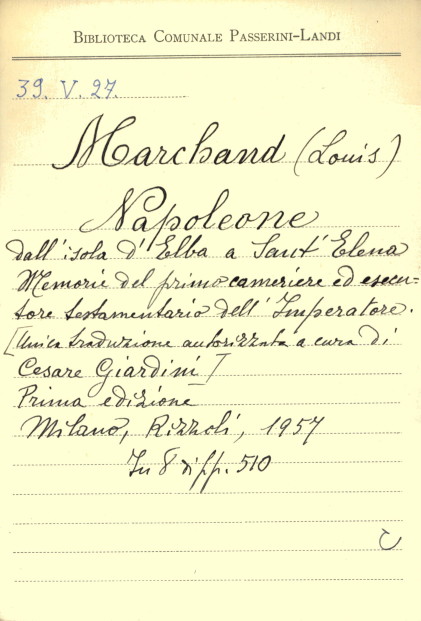 BIBLIOTECA COMUNALE PASSERINI-LANDI
39. V. 27.
Marchand (Louis)
Napoleone
dall'isola d'Elba a Sant'Elena
Memorie del primo cameriere ed esecu-
tore testamentario dell'Imperatore.
[Unica traduzione autorizzata a cura di
Cesare Giardini]
Prima edizione
Milano, Rizzoli, 1957
In 8 di pp. 510